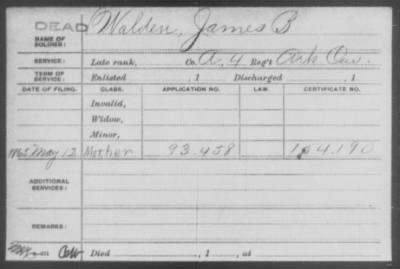 DEAD Walden, James B
NAME OF SOLDIER:
SERVICE: Late rank, Co. A, 4 Reg't Ark Cav.
TERM OF SERVICE: Enlisted , 1 Discharged , 1
DATE OF FILING. CLASS. APPLICATION NO. LAW. CERTIFICATE NO.
Invalid,
Widow,
Minor,
1865 May 12 Mother 93.458 154.190
ADDITIONAL SERVICES:
REMARKS:
Died , 1 , at